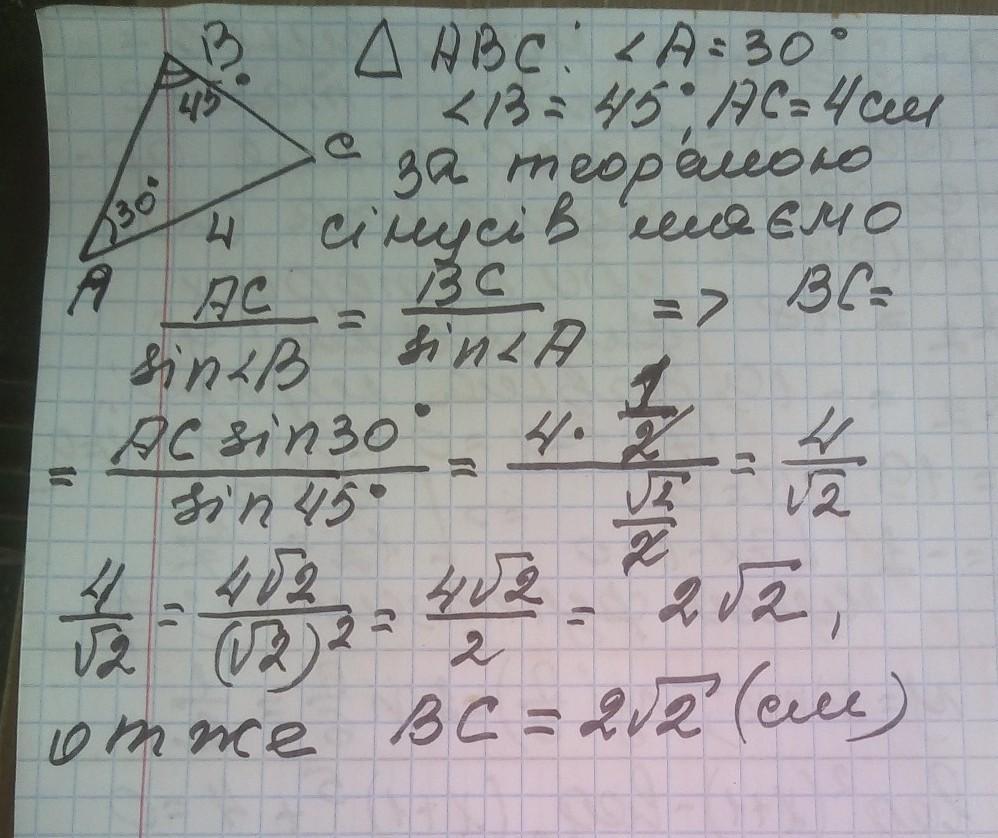 B
45°
C
30°
4
A
△ ABC: ∠A = 30°
∠B = 45°, AC = 4 см
за теоремою
сінусів маємо
AC/sin∠B = BC/sin∠A => BC =
= AC sin30°/sin45° = (4 · 1/2)/(√2/2) = 4/√2
4/√2 = 4√2/(√2)² = 4√2/2 = 2√2,
отже BC = 2√2 (см)